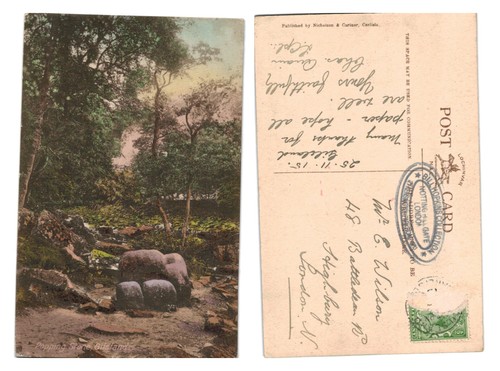 Published by Nicholson & Cartner, Carlisle.
THIS SPACE MAY BE USED FOR COMMUNICATION.
POST CARD
Gilsland
25.11.15
many thanks for
paper - hope all
are well.
Yours faithfully
NOTTING HILL GATE
LONDON
TO BE
Mr C. Wilson
48 Battledean Rd
Highbury
London N.